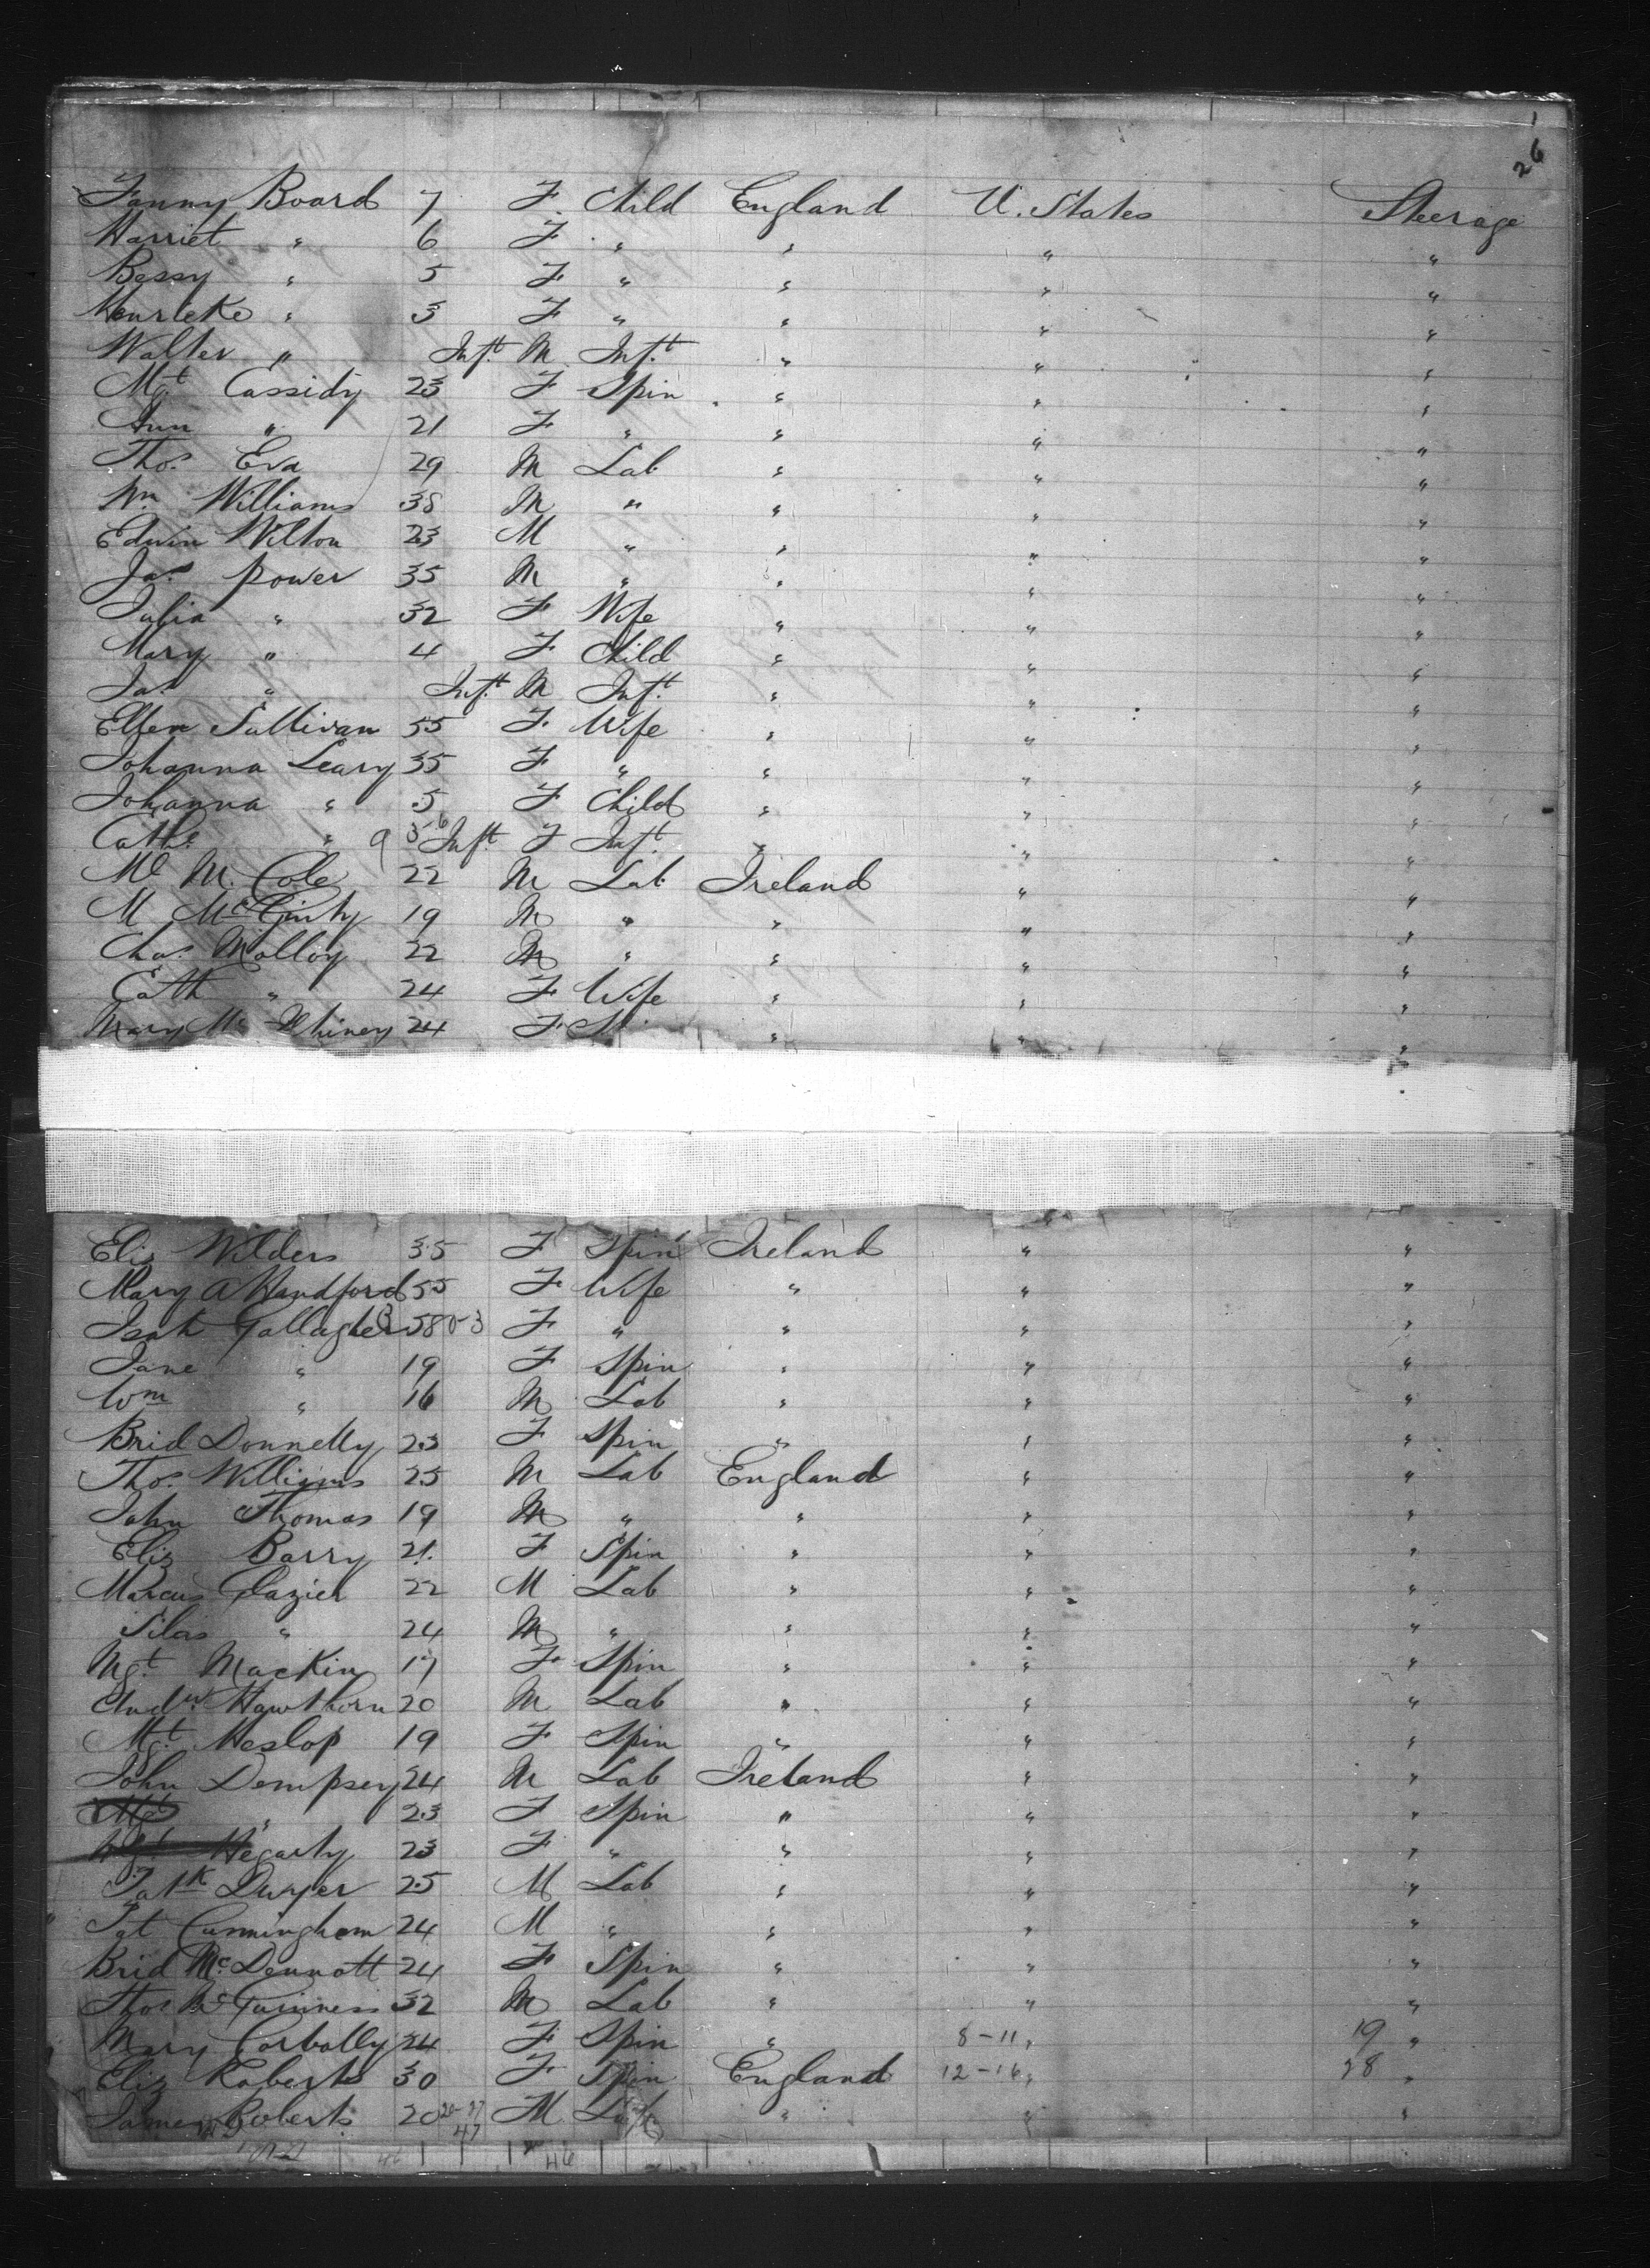 26
Fanny Board 7 F. Child England U. States Steerage
Harriet " 6 F. " " " "
Bessy " 5 F. " " " "
" 3 F. " " " "
Walter " Inft. M Inft. " " "
Mgt. Cassidy 23 F Spin " " "
Ann " 21 F " " " "
Thos. Eva 29 M Lab " " "
Wm. Williams 38 M " " " "
Edwin Wilton 23 M " " " "
Jas. Power 35 M " " " "
Julia " 32 F Wife " " "
Mary " 4 F Child " " "
Jas. " Inft. M Inft. " " "
Ellen Sullivan 55 F. Wife " " "
Johanna Leary 35 F " " " "
Johanna " 5 F Child " " "
Cathe. " 9 Inft F Inft. " " "
Ml M. Cole 22 M Lab Ireland " "
M McGinty 19 M " " " "
Chas. Molloy 22 M " " " "
Cath " 24 F Wife " " "
Mary Mc 24 F " " "
Eliz Wilders 35 F Spin Ireland " "
Mary A Handford 55 F Wife " " "
Gallagher 58 F " " " "
Jane " 19 F Spin " " "
Wm " 16 M Lab " " "
Brid Donnelly 23 F Spin " " "
Thos. Williams 25 M Lab England " "
John Thomas 19 M " " " "
Eliz Barry 21 F Spin " " "
Marcus Glazier 22 M Lab " " "
Silas " 24 M " " " "
Mgt. Mackin 17 F Spin " " "
Andw. Hawthorn 20 M Lab " " "
Mgt. Heslop 19 F Spin " " "
John Dempsey 24 M Lab Ireland " "
" 23 F Spin " " "
Hegarty 23 F " " " "
Patk Dwyer 25 M Lab " " "
Pat Cunningham 24 M " " " "
Brid McDermott 24 F Spin " " "
Thos McGuinness 32 M Lab " " "
Mary Corbally 24 F Spin " 8-11 " 19 "
Eliz Roberts 30 F Spin England 12-16 " 28 "
James Roberts 20 M Lab " " "
47
46